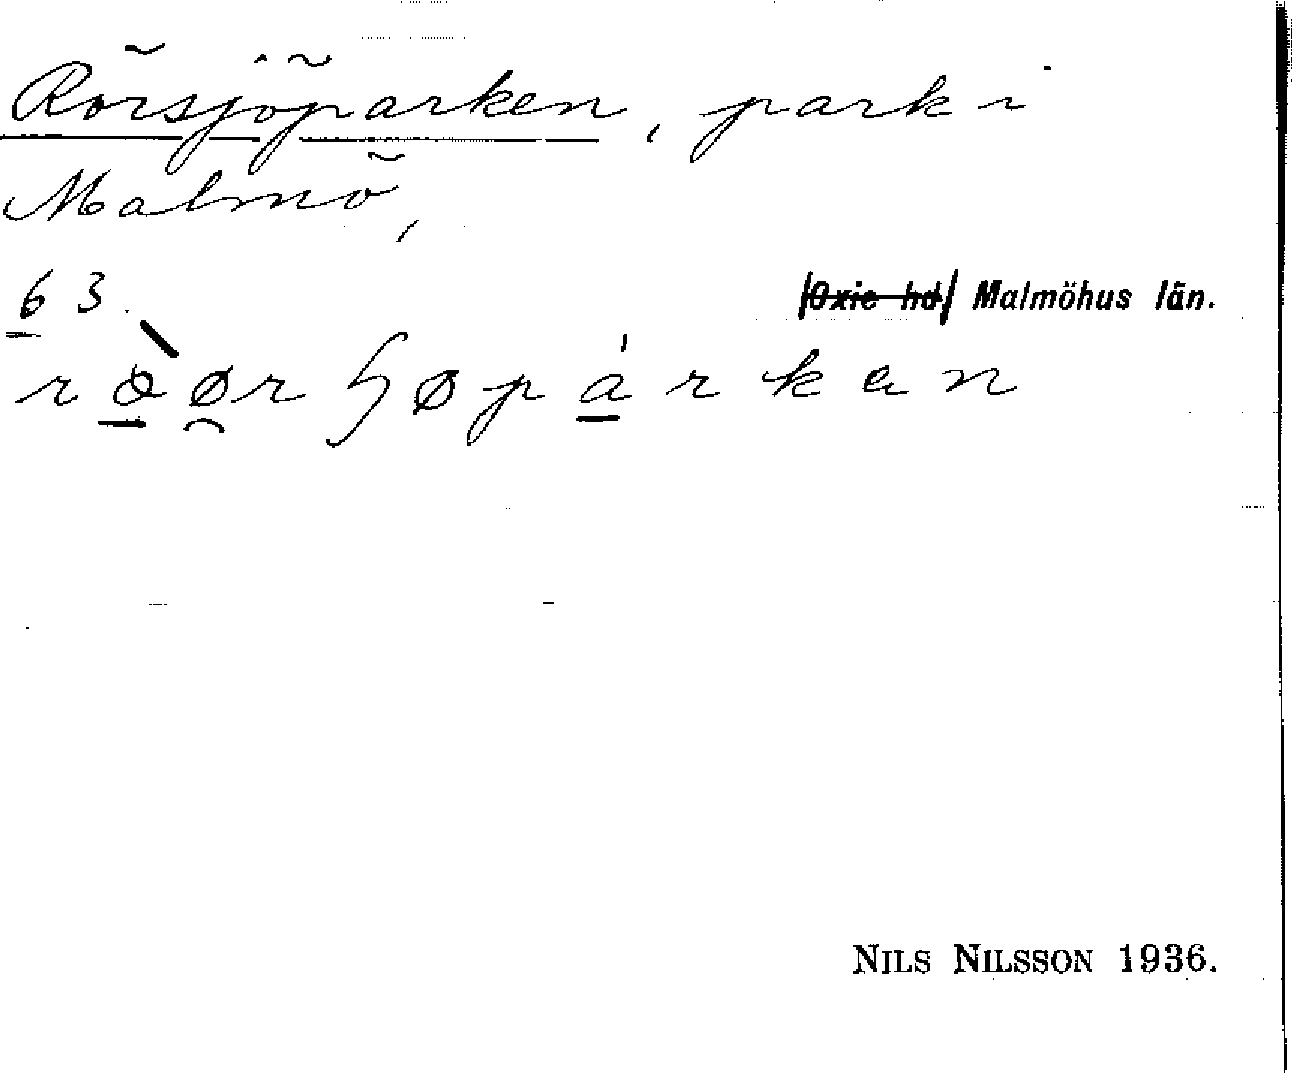 Rörsjöparken, park i
Malmö,
63. |Oxie hd| Malmöhus län.
NILS NILSSON 1936.